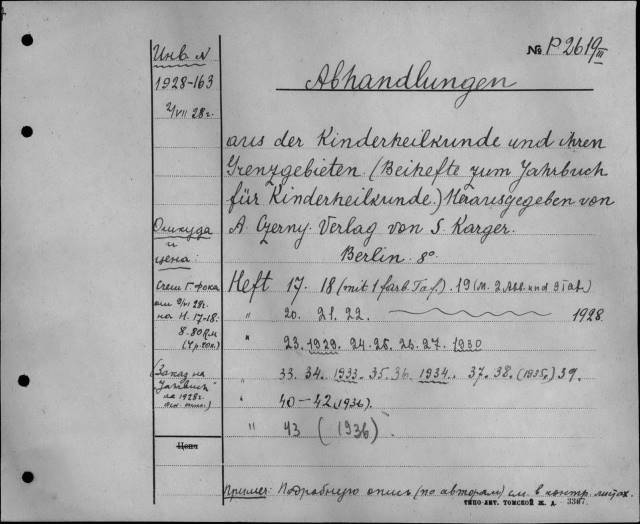 № P 2619 III
Инв. N
1928-163
2/VII 28 г.
Abhandlungen
aus der Kinderheilkunde und ihren
Grenzgebieten. (Beihefte zum Jahrbuch
für Kinderheilkunde.) Herausgegeben von
A. Czerny. Verlag von S. Karger.
Berlin. 8º.
Откуда
и
цена:
Счет Г. Фока
на H. 17-18.
8.80 RM
Heft 17. 18 (mit 1 farb. Taf.). 19 (m. 2 Abb. und 3 Taf.)
" 20. 21. 22. 1928.
" 23. 1929. 24. 25. 26. 27. 1930
" 33. 34. 1933. 35. 36. 1934. 37. 38. (1935.) 39.
" 40-42 (1936).
" 43 (1936).
(Заказ на
на 1928 г.
Цена
Пример: Подробную опись (по авторам) см. в контр. листах.
ТИПО-ЛИТ. ТОМСКОЙ Ж. Д. 3387.